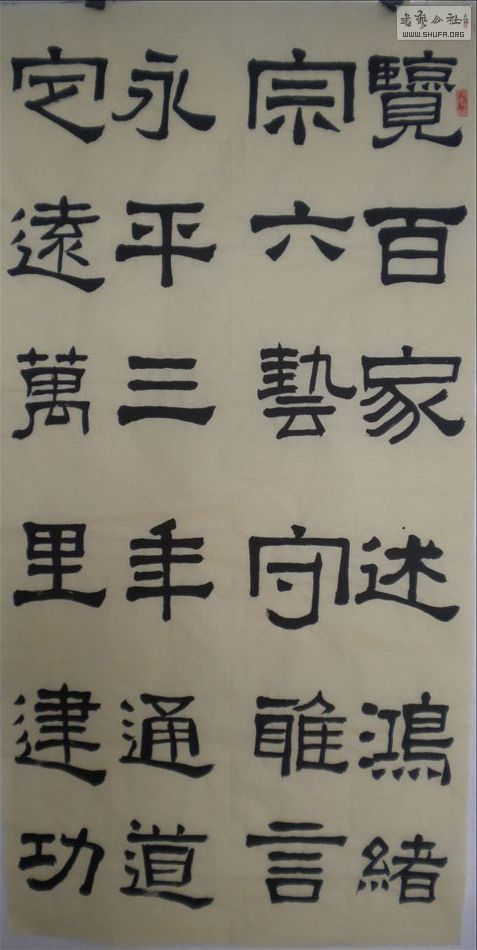 覽百家述鴻緒
宗六藝守雅言
永平三年通道
定遠萬里建功
書藝公社
WWW.SHUFA.ORG